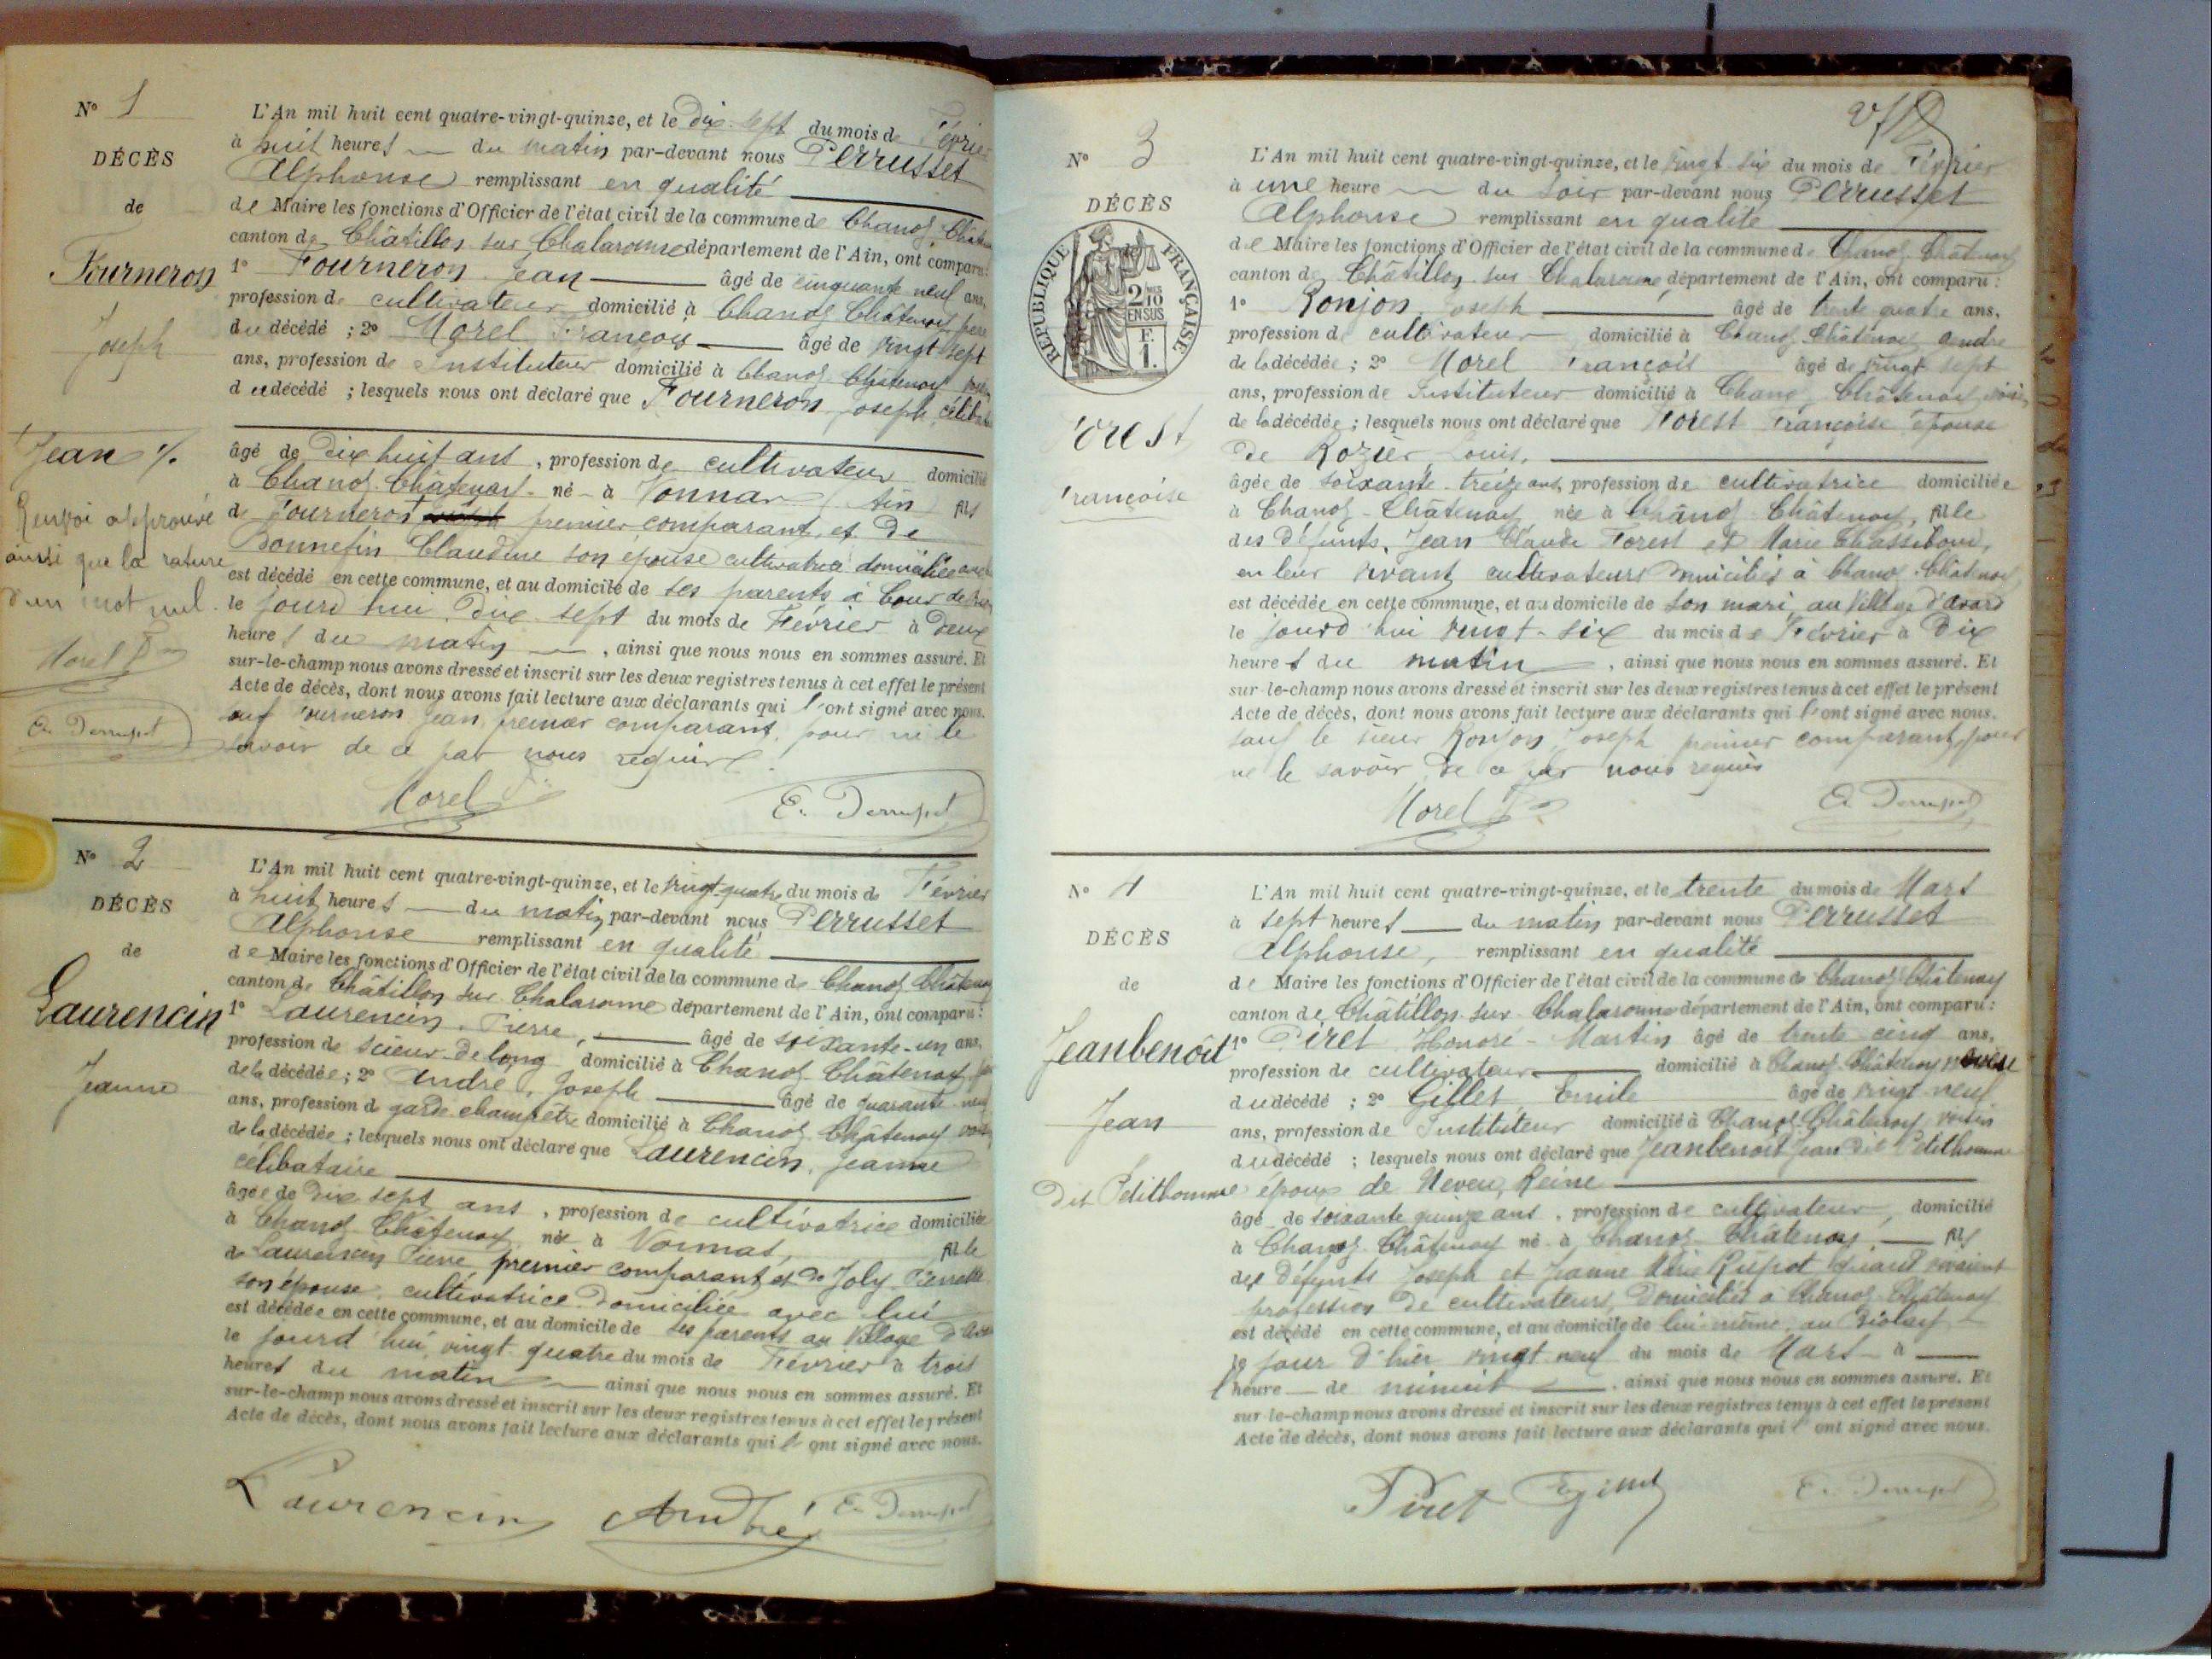 N° 1
DÉCÈS
de
Fourneron
Joseph
Jean %.
Renvoi approuvé
ainsi que la rature
d'un mot nul.
Morel
L'An mil huit cent quatre-vingt-quinze, et le Dix-sept du mois de Février
à huit heures du matin par-devant nous Perrusset
Alphonse remplissant en qualité
de Maire les fonctions d'Officier de l'état civil de la commune de Chanoz-Châten
canton de Châtillon sur Chalaronne département de l'Ain, ont comparu:
1° Fourneron Jean âgé de cinquante neuf ans,
profession de cultivateur domicilié à Chanoz Châtenay père
du décédé ; 2° Morel François âgé de vingt-sept
ans, profession de Instituteur domicilié à Chanoz-Châtenay
du décédé ; lesquels nous ont déclaré que Fourneron Joseph, céliba
âgé de Dix huit ans, profession de cultivateur domicilié
à Chanoz-Châtenay né à Vonnas (Ain) fils
de Fourneron premier comparant, et de
Bonnefin Claudine son épouse cultivatrice domiciliée avec
est décédé en cette commune, et au domicile de ses parents à
le jourd'hui Dix-sept du mois de Février à Deux
heures du matin, ainsi que nous nous en sommes assuré. Et
sur-le-champ nous avons dressé et inscrit sur les deux registres tenus à cet effet le présent
Acte de décès, dont nous avons fait lecture aux déclarants qui l'ont signé avec nous.
sauf Fourneron Jean, premier comparant, pour ne le
savoir de ce par nous requis.
Morel
N° 2
DÉCÈS
de
Laurencin
Jeanne
L'An mil huit cent quatre-vingt-quinze, et le vingt-quatre du mois de Février
à huit heures du matin par-devant nous Perrusset
Alphonse remplissant en qualité
de Maire les fonctions d'Officier de l'état civil de la commune de Chanoz Châtenay
canton de Châtillon sur Chalaronne département de l'Ain, ont comparu:
1° Laurencin, Pierre, âgé de soixante-un ans,
profession de scieur de long domicilié à Chanoz Châtenay
de la décédée; 2° André, Joseph âgé de quarante-neuf
ans, profession de garde champêtre domicilié à Chanoz Châtenay
de la décédée; lesquels nous ont déclaré que Laurencin, Jeanne
célibataire
âgée de Dix sept ans, profession de cultivatrice domiciliée
à Chanoz Châtenay née à Vonnas, fille
de Laurencin Pierre premier comparant, et de Joly Pierrette
son épouse, cultivatrice domiciliée avec lui
est décédée en cette commune, et au domicile de ses parents au Village
le jourd'hui vingt-quatre du mois de Février à trois
heures du matin ainsi que nous nous en sommes assuré. Et
sur-le-champ nous avons dressé et inscrit sur les deux registres tenus à cet effet le présent
Acte de décès, dont nous avons fait lecture aux déclarants qui l'ont signé avec nous.
Laurencin André
N° 3
DÉCÈS
RÉPUBLIQUE FRANÇAISE
2/10
EN SUS
F.
1.
Forest
Françoise
L'An mil huit cent quatre-vingt-quinze, et le vingt-six du mois de Février
à une heure du soir par-devant nous Perrusset
Alphonse remplissant en qualité
de Maire les fonctions d'Officier de l'état civil de la commune de Chanoz-Châtenay
canton de Châtillon sur Chalaronne département de l'Ain, ont comparu :
1° Ronjon Joseph âgé de trente quatre ans,
profession de cultivateur domicilié à Chanoz-Châtenay gendre
de la décédée ; 2° Morel François âgé de vingt sept
ans, profession de Instituteur domicilié à Chanoz Châtenay voisin
de la décédée ; lesquels nous ont déclaré que Forest Françoise épouse
de Rozier Louis,
âgée de soixante-treize ans, profession de cultivatrice domiciliée
à Chanoz-Châtenay née à Chanoz-Châtenay, fille
des défunts, Jean Claude Forest et Marie
en leur vivant cultivateurs domiciliés à Chanoz-Châtenay
est décédée en cette commune, et au domicile de son mari, au Village
le jourd'hui vingt-six du mois de Février à Dix
heures du matin, ainsi que nous nous en sommes assuré. Et
sur-le-champ nous avons dressé et inscrit sur les deux registres tenus à cet effet le présent
Acte de décès, dont nous avons fait lecture aux déclarants qui l'ont signé avec nous.
sauf le sieur Ronjon Joseph premier comparant, pour
ne le savoir de ce par nous requis
Morel
N° 4
DÉCÈS
de
Jeanbenoît
Jean
Dit Petithomme
L'An mil huit cent quatre-vingt-quinze, et le trente du mois de Mars
à sept heures du matin par-devant nous Perrusset
Alphonse, remplissant en qualité
de Maire les fonctions d'Officier de l'état civil de la commune de Chanoz Châtenay
canton de Châtillon sur Chalaronne département de l'Ain, ont comparu :
1° Piret Honoré-Martin âgé de trente cinq ans,
profession de cultivateur domicilié à Chanoz-Châtenay
du décédé ; 2° Gilles, Emile âgé de vingt-neuf
ans, profession de Instituteur domicilié à Chanoz-Châtenay voisin
du décédé ; lesquels nous ont déclaré que Jeanbenoit Jean dit Petithomme
époux de Neveu, Reine
âgé de soixante quinze ans, profession de cultivateur, domicilié
à Chanoz Châtenay né à Chanoz-Châtenay fils
des défunts Joseph et Jeanne Marie
profession de cultivateurs, domiciliés à Chanoz-Châtenay
est décédé en cette commune, et au domicile de lui-même, au Biolay
le jour d'hier vingt-neuf du mois de Mars à
heure de minuit, ainsi que nous nous en sommes assuré. Et
sur-le-champ nous avons dressé et inscrit sur les deux registres tenus à cet effet le présent
Acte de décès, dont nous avons fait lecture aux déclarants qui l'ont signé avec nous.
Piret